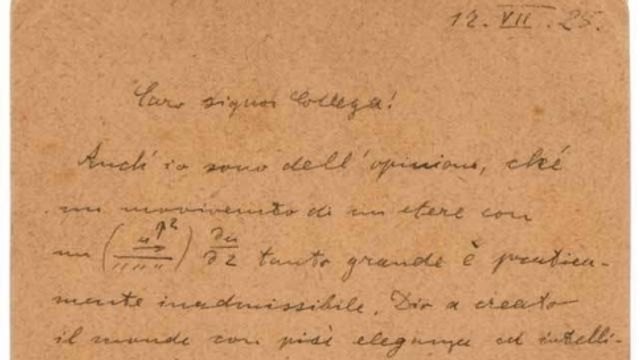 12.VII.25.
Caro signor Collega!
Anch' io sono dell' opinione, ché
un movivento di un etere con
un ∂u/∂z tanto grande è pratica-
mente inadmissibile. Dio a creato
il mondo con più eleganza ed intelli-